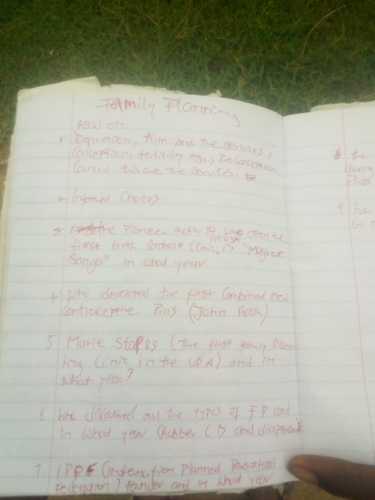 Family Planning
Read on.
1 Definition, aim and the services,
Conception, fertility mgt, Preconception
Career towane the services.
2 Informed Choices
3 the Pioneer activist who open the
first birth control clinic in USA is "Magret
Sanga" in what year
4 Who developed the first combined oral
contraceptive Pills (John Rock)
5 Marie Stopes (The first family plann
ing clinic in the USA) and in
what year?
6 Who discussed all the types of FP and
in what year (Rubber CD and diaphram
7 IPPF (internation Planned Parenthood
Federation) founder and in what year
8 the
9 how